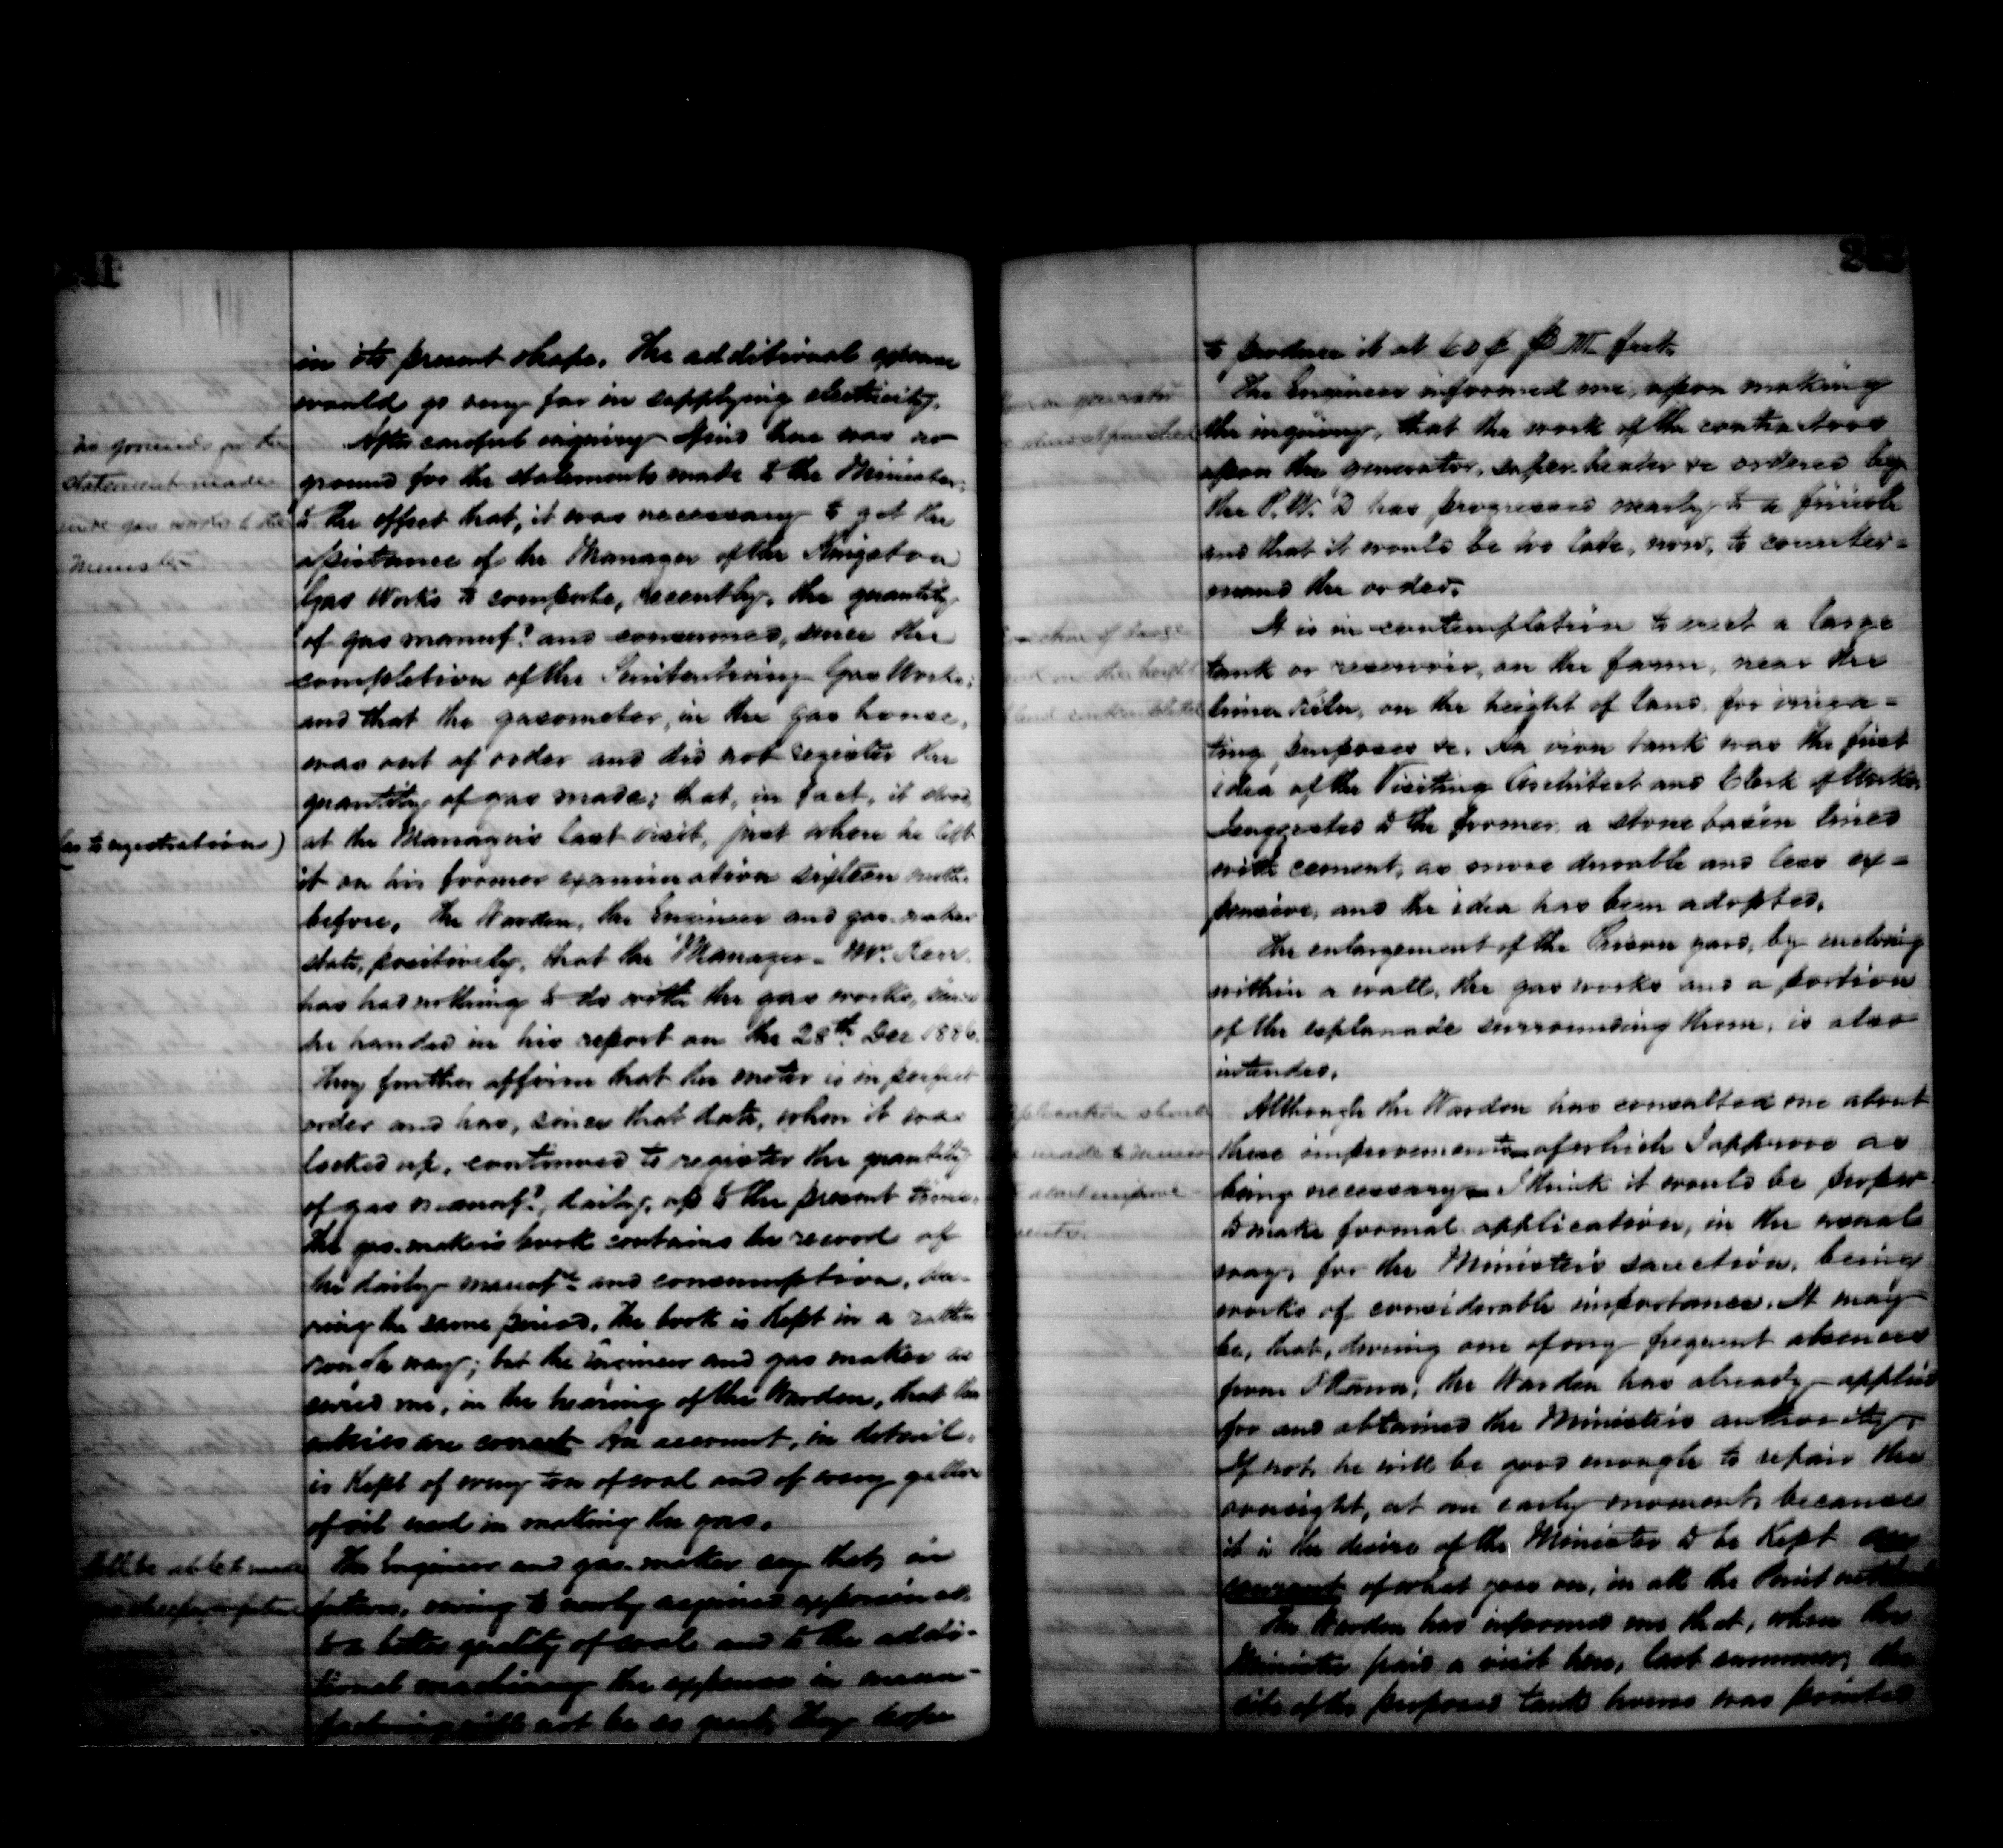 in its present shape. The additional expense
would go very far in supplying electricity.
No grounds for the
statement made
gas works to the
Minister
After careful inquiry I find there was no
ground for the statements made to the Minister,
to the effect that, it was necessary to get the
assistance of the Manager of the Kingston
Gas Works to compute, recently, the quantity
of gas manufd. and consumed, since the
completion of the Penitentiary Gas Works;
and that the gasometer, in the gas house,
was out of order and did not register the
quantity of gas made; that, in fact, it stood,
(as to registration)
at the Manager's last visit, just where he left
it on his former examination sixteen months
before. The Warden, the Engineer and gas-maker
state, positively, that the Manager - Mr. Kerr
has had nothing to do with the gas works, since
he handed in his report on the 28th Dec 1886.
They further affirm that the meter is in perfect
order and has, since that date, when it was
locked up, continued to register the quantity
of gas manufd., daily, up to the present time.
The gas-maker's book contains the record of
the daily manufre and consumption, du-
ring the same period. The book is kept in a rather
rough way; but the Engineer and gas maker as
sured me, in the hearing of the Warden, that the
entries are correct. An account, in detail,
is kept of every ton of coal and of every gallon
of oil used in making the gas.
Will be able to make
gas cheaper in future
The Engineer and gas-maker say that, in
future, owing to newly acquired experience,
to a better quality of coal and to the addi-
tional machinery the expense in manu-
facturing will not be so great, they hope
to produce it at 60 ¢ ⅌ M feet.
generator
The Engineer informed me, upon making
the inquiry, that the work of the contractors
upon the generator, super-heater &c ordered by
the P. W. D has progressed nearly to a finish
and that it would be too late, now, to counter=
mand the order.
of large
tank on the height
of land contemplated
It is in contemplation to erect a large
tank or reservoir, on the farm, near the
lime kiln, on the height of land, for irriga=
ting purposes &c. An iron tank was the first
idea of the Visiting Architect and Clerk of Works
suggested to the former a stone basin lined
with cement, as more durable and less ex=
pensive, and the idea has been adopted.
The enlargement of the Prison yard, by enclosing
within a wall, the gas works and a portion
of the esplanade surrounding them, is also
intended.
Application should
be made to Minister
about improve
ments.
Although the Warden has consulted me about
these improvements - of which I approve as
being necessary - I think it would be proper
to make formal application, in the usual
way, for the Minister's sanction, being
works of considerable importance. It may
be, that, during one of my frequent absences
from Ottawa, the Warden has already applied
for and obtained the Minister's authority.
If not, he will be good enough to repair the
oversight, at an early moment, because
it is the desire of the Minister to be kept au
courant of what goes on, in all the Penitentiaries.
The Warden has informed me that, when the
Minister paid a visit here, last summer, the
site of the proposed tank house was pointed